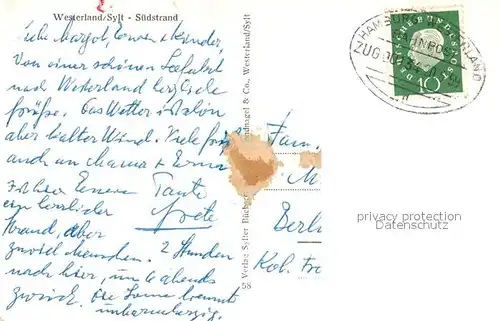 Westerland/Sylt - Südstrand
Liebe Margot, Erwin + Kinder,
Von einer schönen Seefahrt
nach Westerland herzliche
Grüße. Das Wetter ist schön
aber kalter Wind. Viele
auch an Mama +
Tante
ein herrlicher Grete
Strand, aber
zuviel Menschen. 2 Stunden
nach hier, um 6 abends
zurück. Die Sonne brennt
unbarmherzig.
Verlag Sylter & Co., Westerland/Sylt
58
HAMBURG
ZUG
DEUTSCHE BUNDESPOST
10
Fam.
M
Berli
Kol. Fr
privacy protection
Datenschutz